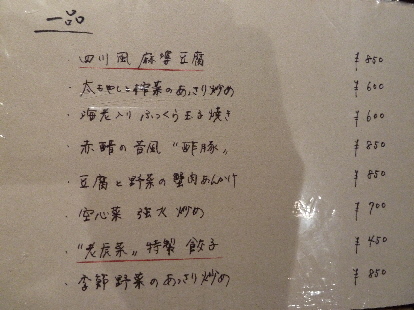 一品
・四川風 麻婆豆腐 ¥850
・太もやしと榨菜のあっさり炒め ¥600
・海老入り ふっくら玉子焼き ¥600
・赤 の 風 "酢豚" ¥850
・豆腐と野菜の蟹肉あんかけ ¥850
・空心菜 強火炒め ¥700
・"老辰菜" 特製 餃子 ¥450
・季節野菜のあっさり炒め ¥850